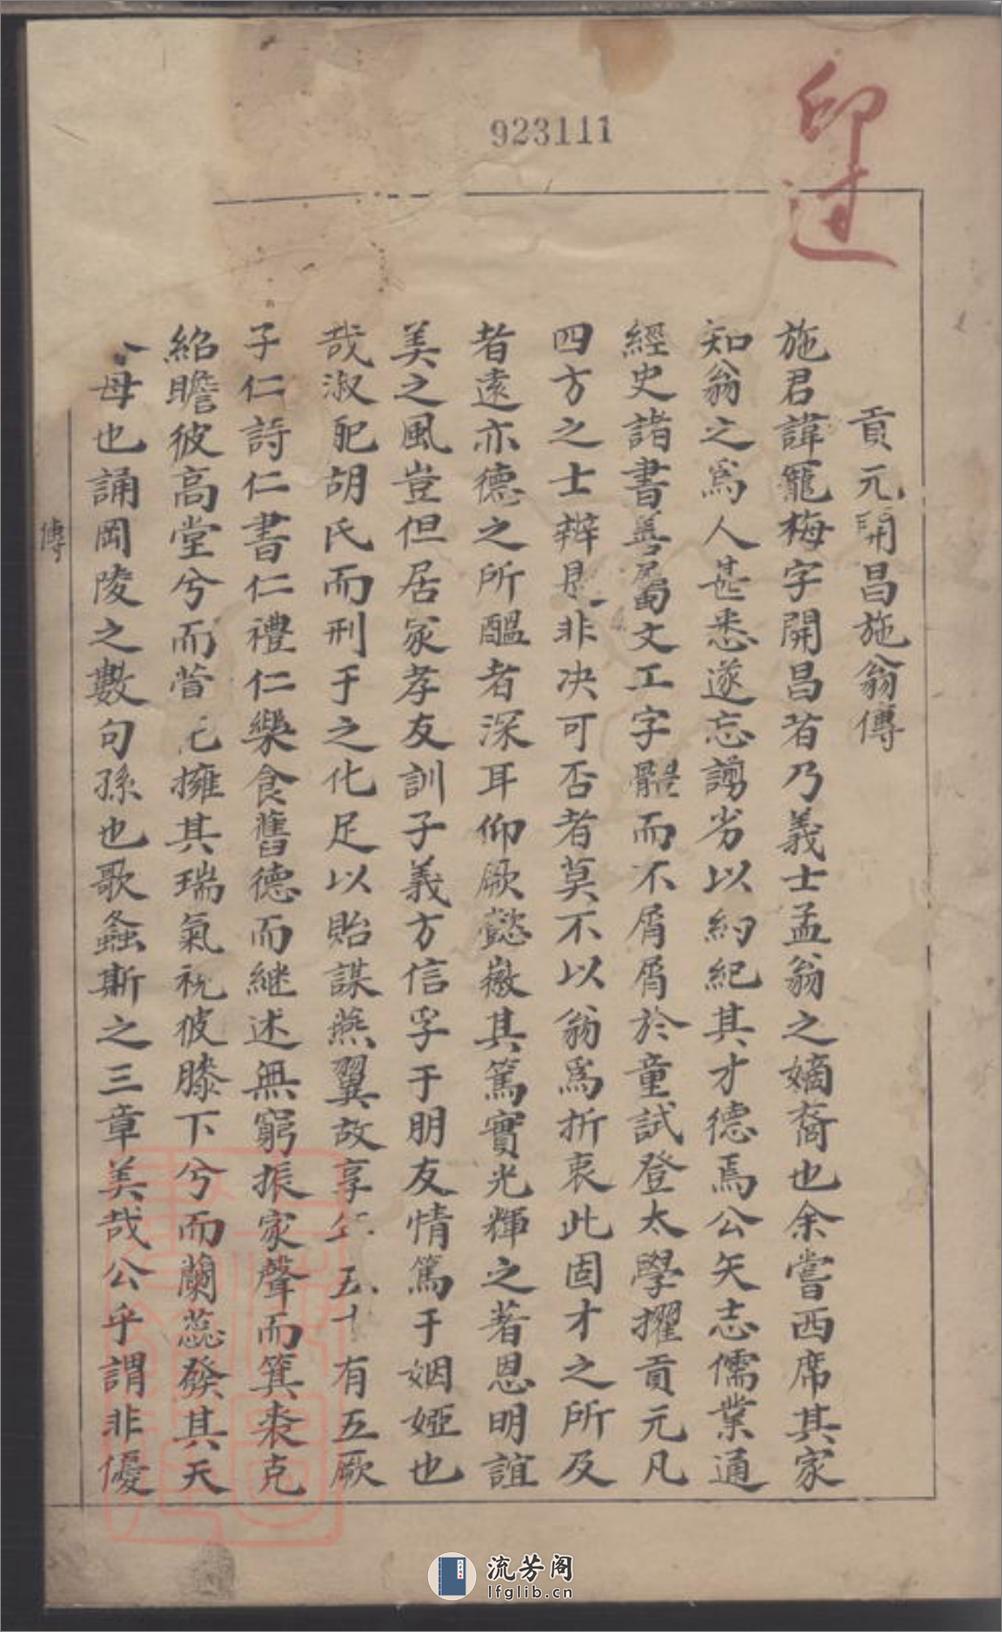 923111
印過
貢元開昌施翁傳
施君諱寵梅字開昌者乃義士孟翁之嫡裔也余嘗西席其家
知翁之爲人甚悉遂忘謭劣以約紀其才德焉公矢志儒業通
經史諸書善屬文工字體而不屑屑於童試登太學擢貢元凡
四方之士辨是非决可否者莫不以翁爲折衷此固才之所及
者遠亦德之所醞者深耳仰厥懿徽其篤實光輝之著恩明誼
美之風豈但居家孝友訓子義方信孚于朋友情篤于姻婭也
哉淑配胡氏而刑于之化足以貽謀燕翼故享年五十有五厥
子仁詩仁書仁禮仁樂食舊德而継述無窮振家聲而箕裘克
紹瞻彼高堂兮而萱花擁其瑞氣祝彼膝下兮而蘭蕊發其天
母也誦岡陵之數句孫也歌螽斯之三章美哉公乎謂非優
傳
流芳阁
lfglib.cn